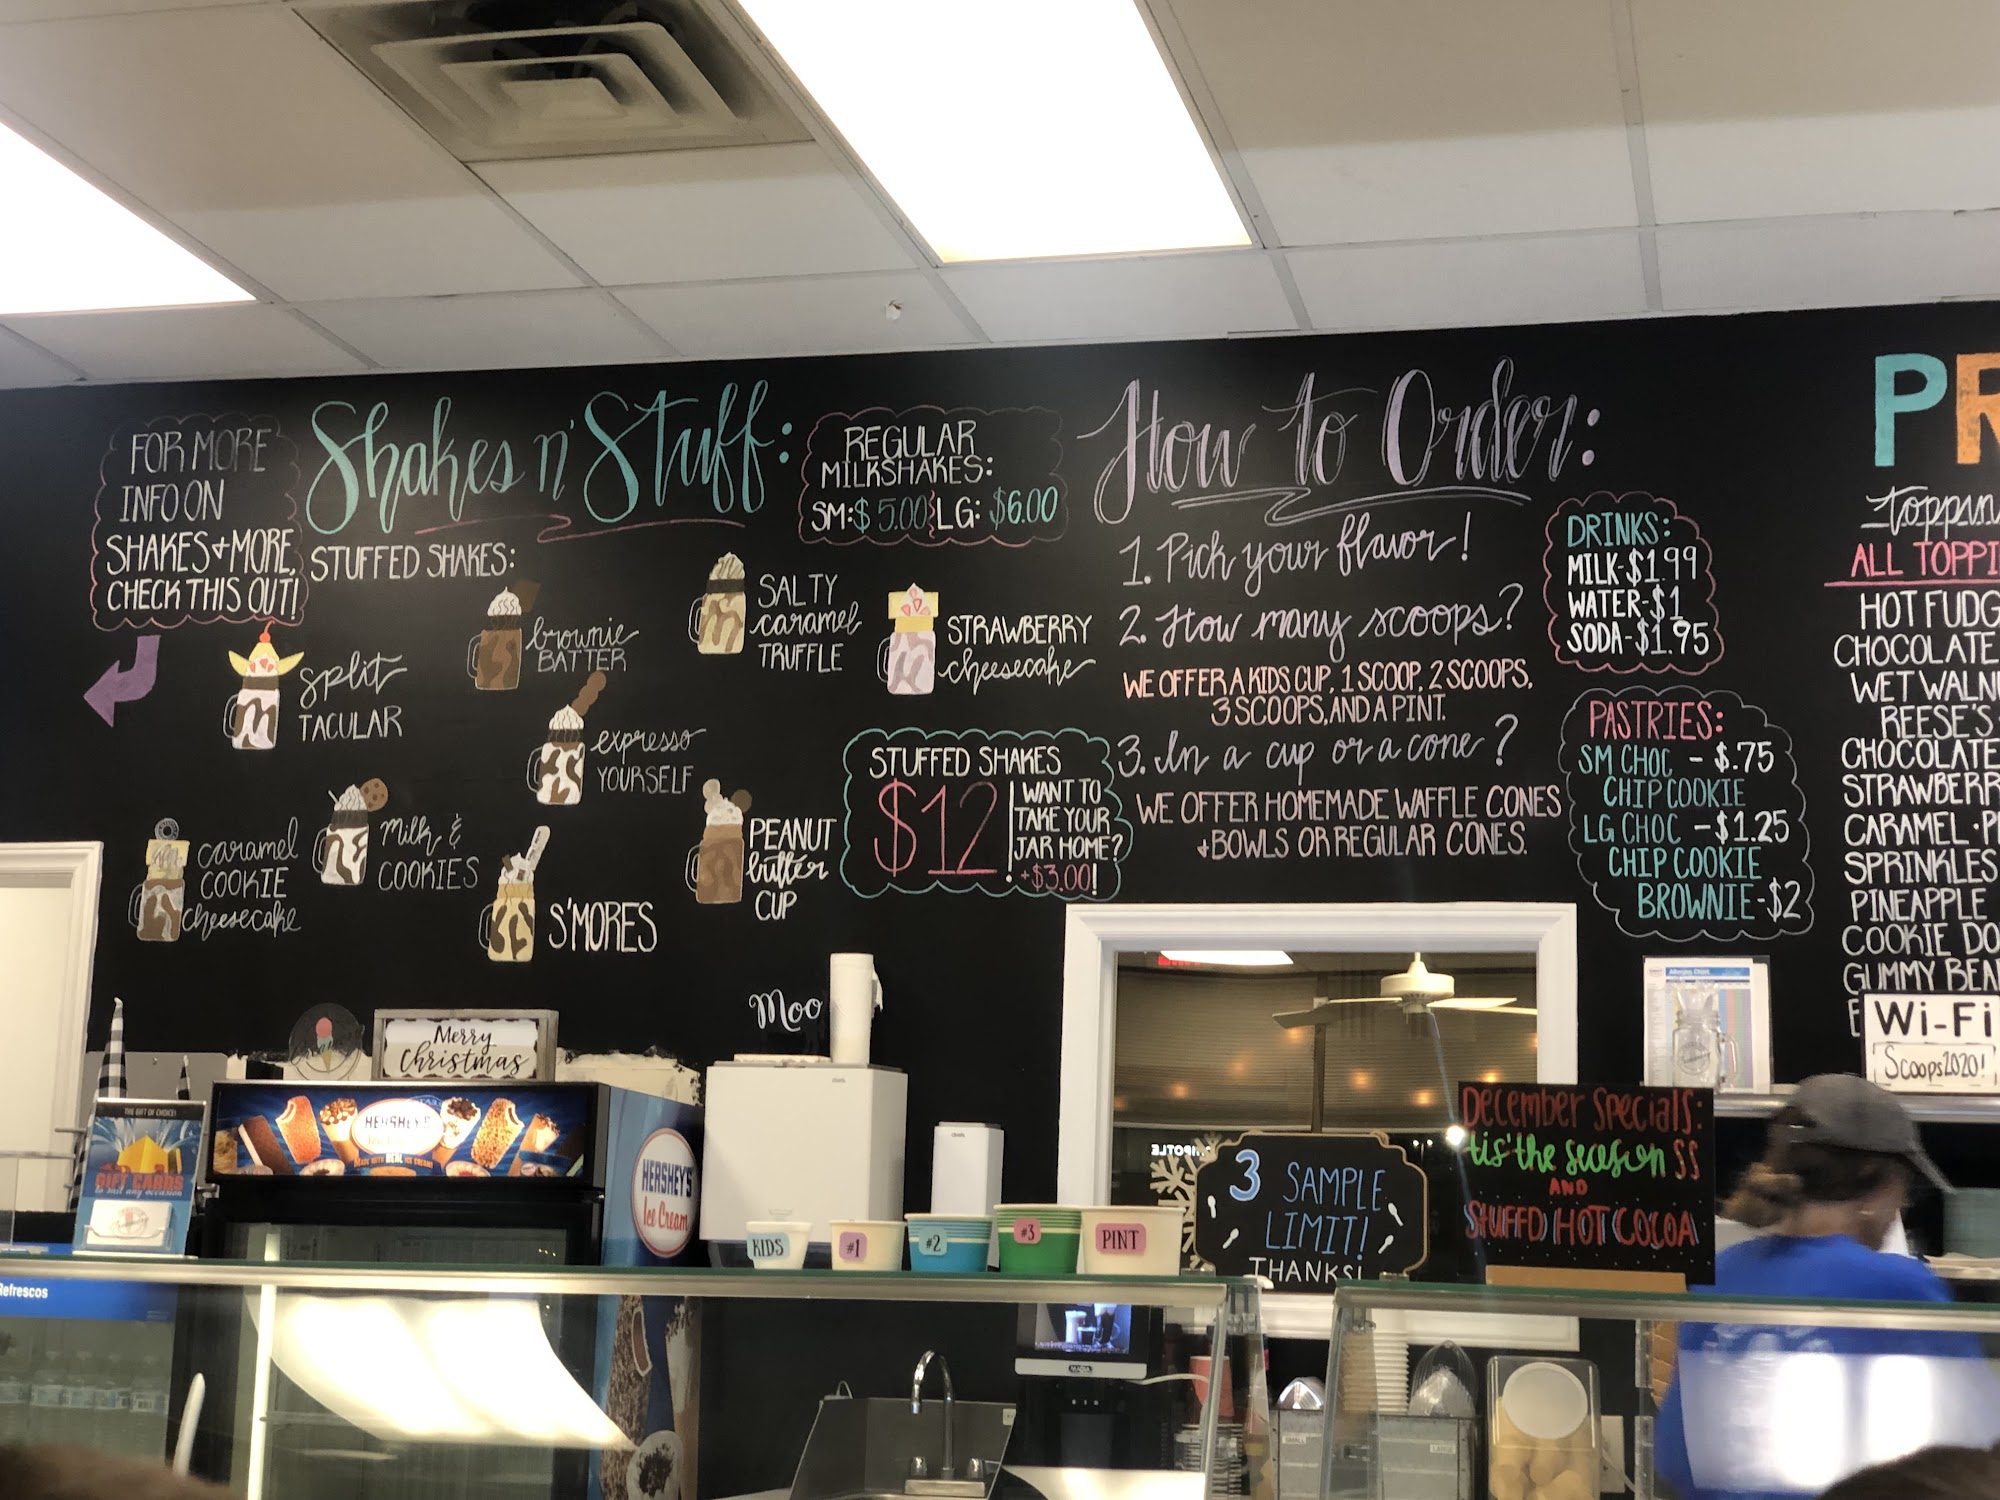 FOR MORE
INFO ON
SHAKES + MORE,
CHECK THIS OUT!
Shakes n' Stuff:
STUFFED SHAKES:
split
TACULAR
brownie
BATTER
SALTY
caramel
TRUFFLE
STRAWBERRY
cheesecake
expresso
YOURSELF
caramel
COOKIE
cheesecake
Milk &
COOKIES
S'MORES
PEANUT
butter
CUP
REGULAR
MILKSHAKES:
SM: $5.00 LG: $6.00
STUFFED SHAKES
$12
WANT TO
TAKE YOUR
JAR HOME?
+$3.00!
How to Order:
1. Pick your flavor!
2. How many scoops?
WE OFFER A KIDS CUP, 1 SCOOP, 2 SCOOPS,
3 SCOOPS, AND A PINT.
3. In a cup or a cone?
WE OFFER HOMEMADE WAFFLE CONES
+ BOWLS OR REGULAR CONES.
DRINKS:
MILK-$1.99
WATER-$1
SODA-$1.95
PASTRIES:
SM CHOC - $.75
CHIP COOKIE
LG CHOC - $1.25
CHIP COOKIE
BROWNIE-$2
PR
Toppin
ALL TOPPI
HOT FUDG
CHOCOLATE
WET WALN
REESE'S
CHOCOLATE
STRAWBERR
CARAMEL · P
SPRINKLES
PINEAPPLE
COOKIE DO
GUMMY BEA
Wi-Fi
Scoops2020!
Moo
Merry
Christmas
THE GIFT OF CHOICE!
GIFT CARDS
to suit any occasion
HERSHEY'S
Ice Cream
MADE WITH REAL ICE CREAM
HERSHEY'S
Ice Cream
KIDS
#1
#2
#3
PINT
3 SAMPLE
LIMIT!
THANKS!
CHIPOTLE
December Specials:
tis' the season $$
AND
STUFFD HOT COCOA
Refrescos